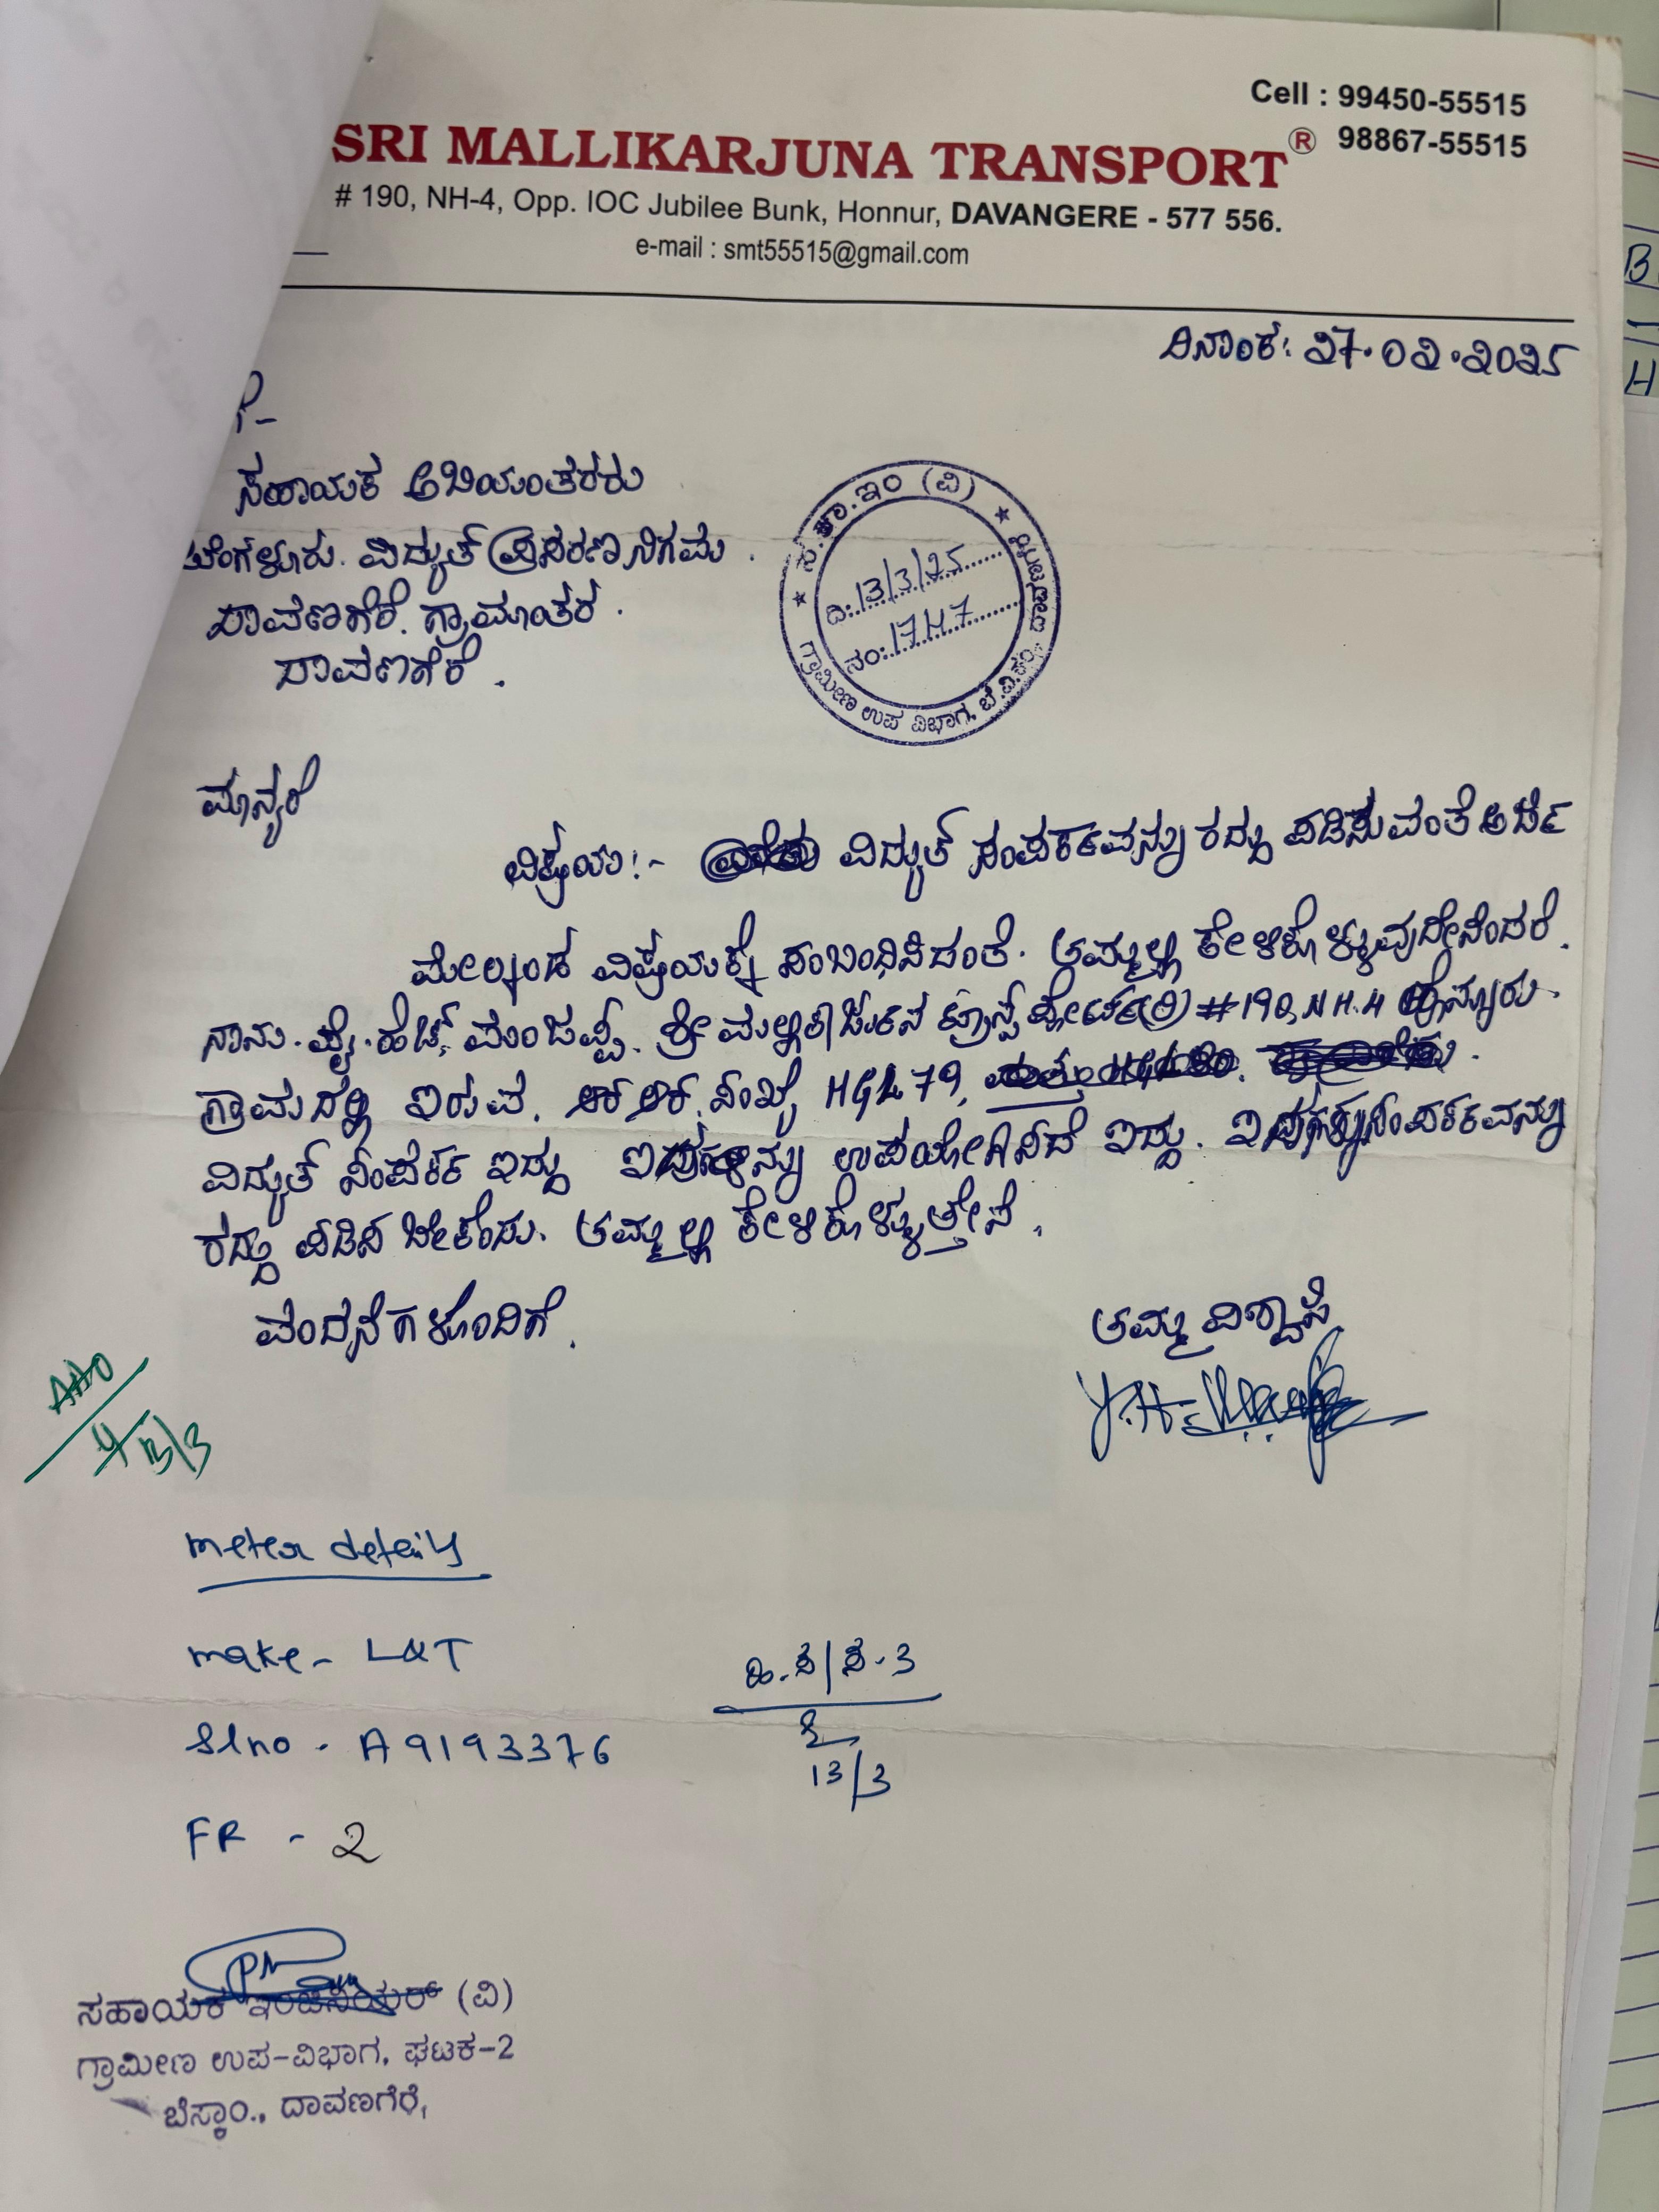 Cell : 99450-55515
98867-55515
SRI MALLIKARJUNA TRANSPORT®
# 190, NH-4, Opp. IOC Jubilee Bunk, Honnur, DAVANGERE - 577 556.
e-mail : smt55515@gmail.com
ದಿನಾಂಕ: ೨7.0೨.೨0೨5
ಸಹಾಯಕ ಅಬಿಯಂತರರು
ಬೆಂಗಳೂರು. ವಿದ್ಯುತ್ ಪ್ರಸರಣ ನಿಗಮ.
ದಾವಣಗೆರೆ. ಗ್ರಾಮಾಂತರ.
ದಾವಣಗೆರೆ.
ಸ.ಕಾ.ಇಂ (ವಿ)
ದಿ: 13/3/25
ನಂ: 1747
ಗ್ರಾಮೀಣ ಉಪ ವಿಭಾಗ, ಬೆ.ವಿ.ಕಂ,
ಮಾನ್ಯರೆ
ವಿಷಯ:- ವಿದ್ಯುತ್ ಸಂಪರ್ಕವನ್ನು ರದ್ದು ಪಡಿಸುವಂತೆ ಅರ್ಜಿ
ಮೇಲ್ಕಂಡ ವಿಷಯಕ್ಕೆ ಸಂಬಂಧಿಸಿದಂತೆ. ತಮ್ಮಲ್ಲಿ ಕೇಳಿಕೊಳ್ಳುವುದೇನೆಂದರೆ.
ನಾನು. ವೈ.ಹೆಚ್. ಮಂಜಪ್ಪ. ಶ್ರೀ ಮಲ್ಲಿಕಾರ್ಜುನ ಟ್ರಾನ್ಸ್ ಪೋರ್ಟ್(ರಿ) #190, NH.4 ಹೊನ್ನೂರು.
ಗ್ರಾಮದಲ್ಲಿ ಇರುವ. ಆರ್ ಆರ್. ಸಂಖ್ಯೆ HGL79,
ವಿದ್ಯುತ್ ಸಂಪರ್ಕ ಇದ್ದು ಉಪಯೋಗಿಸಿದೆ ಇದ್ದು.
ರದ್ದು ಪಡಿಸ ಬೇಕೆಂದು. ತಮ್ಮಲ್ಲಿ ಕೇಳಿಕೊಳ್ಳುತ್ತೇನೆ.
ವಂದನೆಗಳೊಂದಿಗೆ.
ತಮ್ಮ ವಿಶ್ವಾಸಿ
Y.H.
13/3
meter details
make - L&T
Slno - A9193376
13/3
FR - 2
ಸಹಾಯಕ ಇಂಜಿನಿಯರ್ (ವಿ)
ಗ್ರಾಮೀಣ ಉಪ-ವಿಭಾಗ, ಘಟಕ-2
ಬೆಸ್ಕಾಂ., ದಾವಣಗೆರೆ,